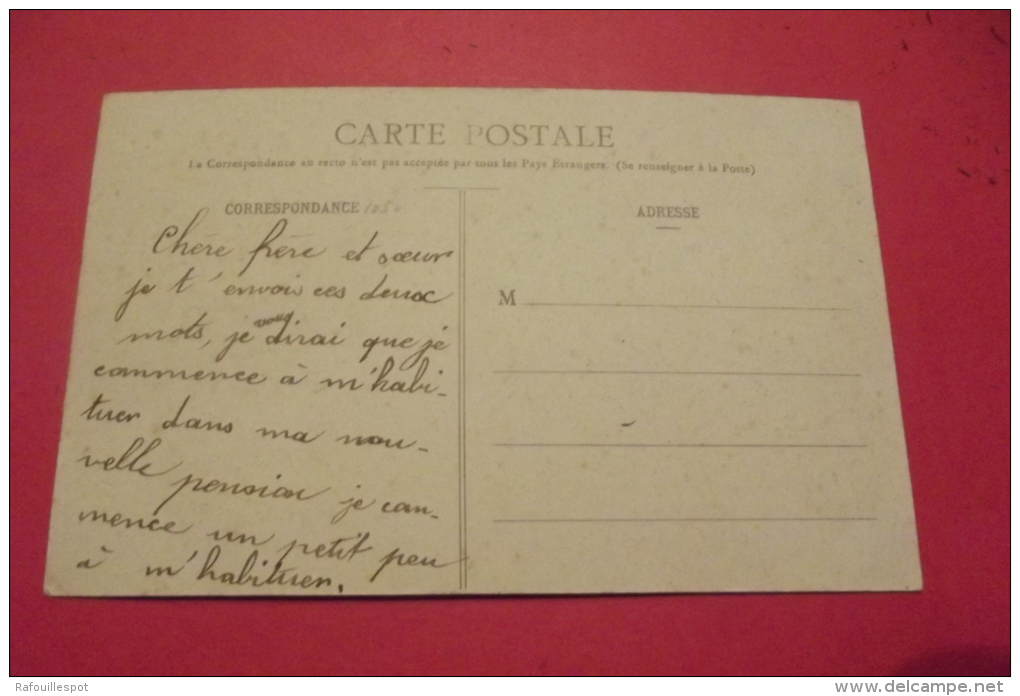 CARTE POSTALE
La Correspondance au recto n'est pas acceptée par tous les Pays Étrangers. (Se renseigner à la Poste)
CORRESPONDANCE 1050
Chère frère et sœur
je t'envois ces deux
mots, je vous dirai que je
commence à m'habi-
tuer dans ma nou-
velle pension je com-
mence un petit peu
à m'habituer.
ADRESSE
M
Rafouillespot
www.delcampe.net